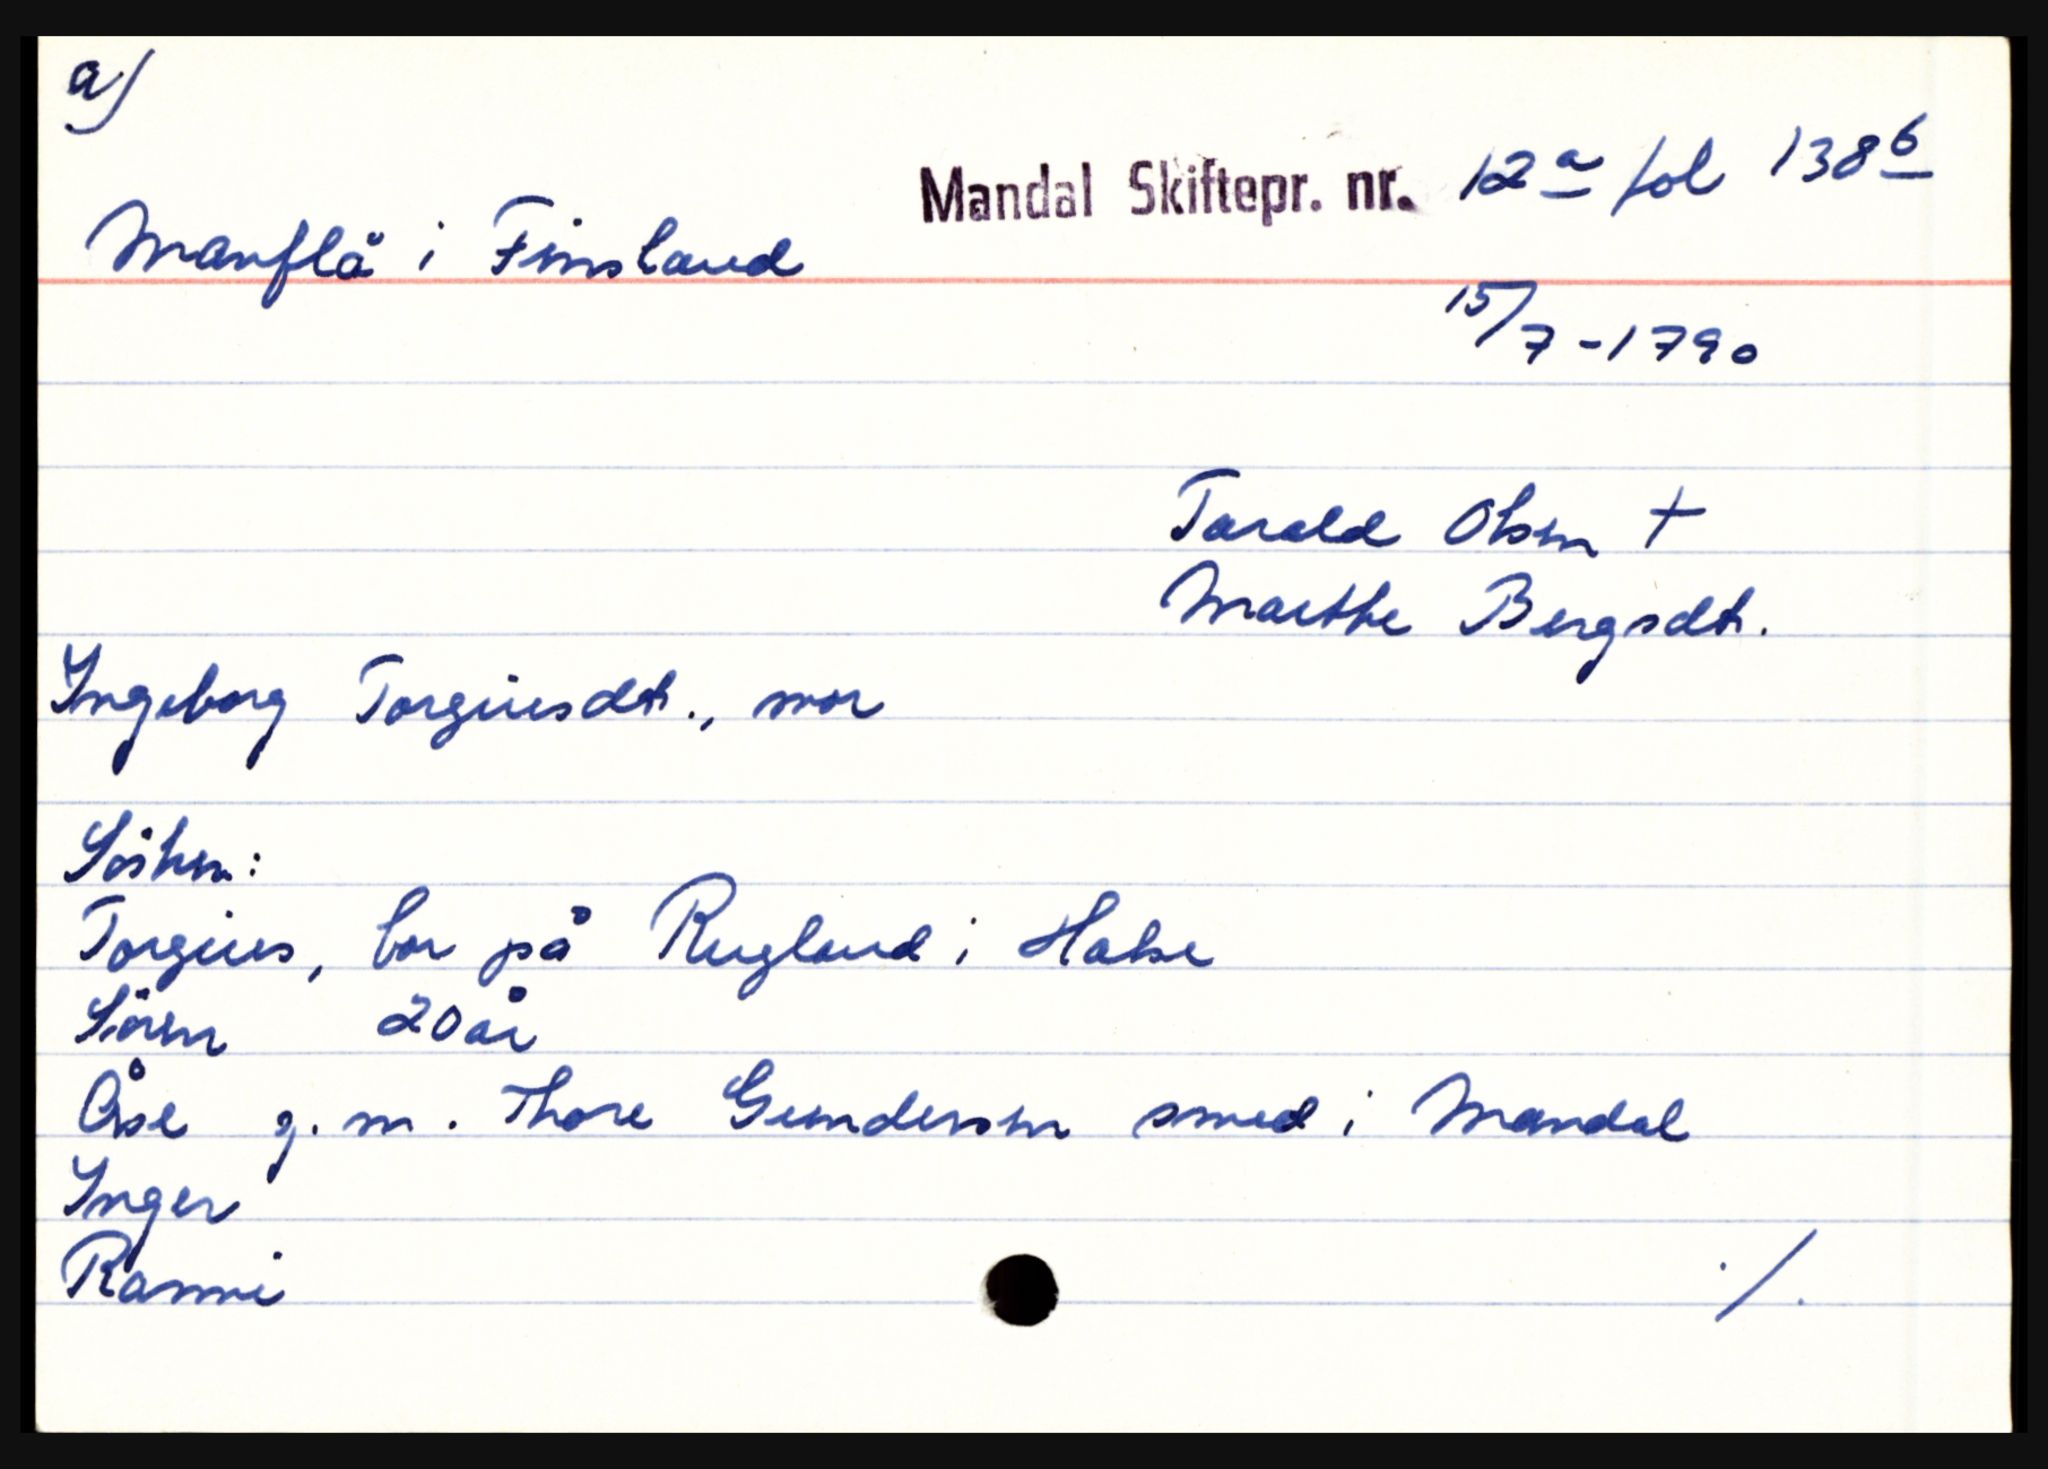 a)
Mandal Skiftepr. nr. 12a fol 138b
Manflå i Finsland
15/7-1790
Tarald Olsen †
Marthe Bergsdt.
Ingeborg Torgiusdt., mor
Søsken:
Torgius, bor på Rugland i Halse
Sören 20 år
Åse g. m. Thore Gundersen smed i Mandal
Inger
Ranni
./.